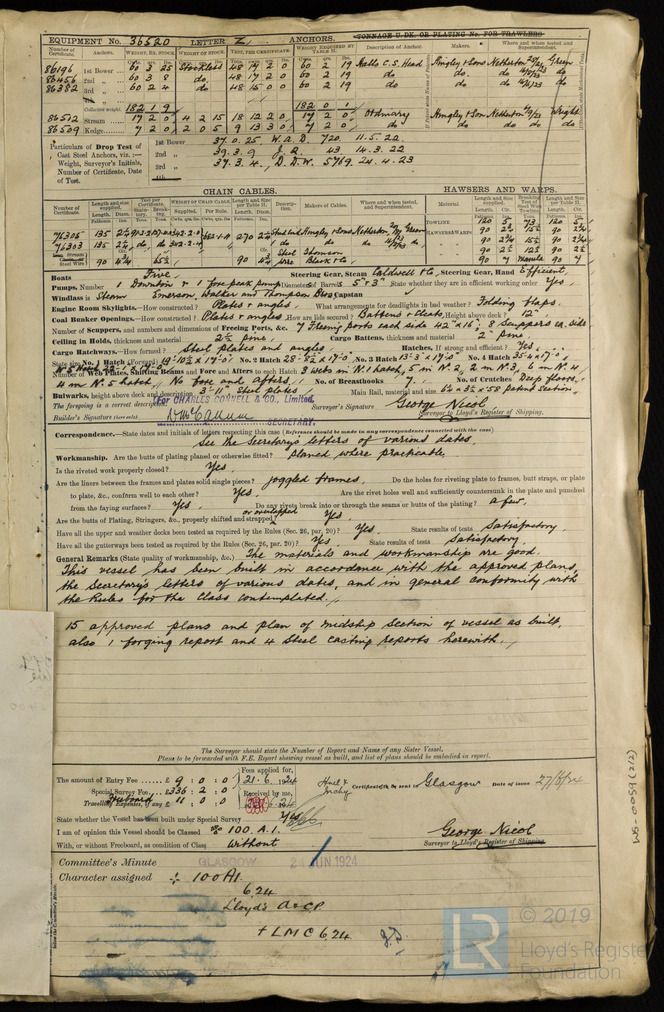 EQUIPMENT No. 36520 LETTER Z ANCHORS. TONNAGE U.DK. OR PLATING No. FOR TRAWLERS
Number of Certificate. Anchors. WEIGHT, EX. STOCK. WEIGHT OF STOCK. TEST, PER CERTIFICATE. WEIGHT REQUIRED BY TABLE 31. Description of Anchor. Makers. Where and when tested and Superintendent.
86196 1st Bower 60 3 25 Stockless 48 19 2 0 60 2 19 Halls C.S. Head Hingley & Sons Netherton Green
86456 2nd " 60 3 8 do. 48 17 2 0 60 2 19 do do. do do
86382 3rd " 60 2 4 do 48 15 0 0 60 2 19 do do do do
Collective weight. 182 1 9 182 0 1
86512 Stream 17 2 0 4 2 15 18 12 2 0 17 2 0 Ordinary Hingley & Son Netherton Wright
86509 Kedge 7 2 0 2 0 5 9 13 3 0 7 2 0 do do do do
Particulars of Drop Test of Cast Steel Anchors, viz.:— Weight, Surveyor's Initials, Number of Certificate, Date of Test.
1st Bower 37.0.25. W.a.D. 720. 11.5.22
2nd " 39.3.9 J.R. 43 14.3.22
3rd " 37.3.4. D.D.W. 5769. 24.4.23
CHAIN CABLES. HAWSERS AND WARPS.
Number of Certificate. Length and size supplied. Test per Certificate. WEIGHT OF CHAIN CABLE. Length and Size per Table 31. Description. Makers of Cables. Where and when tested, and Superintendent. Material. Length and size supplied. Breaking Test of Steel Wire Towline. Length and size per Table 31.
Length. Diam. Supplied. Per Rule. Length. Diam.
76305 135 270 Stud Link Hingley & Sons Netherton Green TOWLINE 120 5 73 120 5
76303 135 do. do do do do HAWSERS & WARPS 90 90
Stream Steel Wire 90 90 Steel wire 90 7 Manila 90 7
Boats Five Steering Gear, Steam Caldwell & Co, Steering Gear, Hand Efficient,
Pumps, Number 1 Downton & 1 fore peak pump Diameter of Barrel 5" & 3" State whether they are in efficient working order Yes,
Windlass is Steam Emerson, Walker and Thompson Bros Capstan ✓
Engine Room Skylights.—How constructed? Plates & angles, What arrangements for deadlights in bad weather? Folding flaps.
Coal Bunker Openings.—How constructed? Plates & angles, How are lids secured? Battens & cleats, Height above deck? 12",
Number of Scuppers, and numbers and dimensions of Freeing Ports, &c. 7 Freeing ports each side 42" x 16", 8 Scuppers ea. side
Ceiling in Holds, thickness and material 2½ pine, Cargo Battens, thickness and material 2" pine.
Cargo Hatchways.—How formed? Steel plates and angles Hatches, If strong and efficient? Yes,
State size No. 1 Hatch (Forward) No. 2 Hatch No. 3 Hatch No. 4 Hatch
Number of Web Plates, Shifting Beams and Fore and Afters to each Hatch 3 webs in N.1 hatch, 5 in N.2, 2 in N.3, 6 in N.4
4 in N.5 hatch, No fore and afters, No. of Breasthooks 7. No. of Crutches Deep floors,
Bulwarks, height above deck and description 3'-11" Steel plates Main Rail, material and size 6½ x 3½ x .58 patent section
The foregoing is a correct description For CHARLES CONNELL & CO., Limited. Surveyor's Signature George Nicol
Builder's Signature (here only) SECRETARY. Surveyor to Lloyd's Register of Shipping.
Correspondence.—State dates and initials of letters respecting this case (Reference should be made in any correspondence connected with the case)
See the Secretary's letters of various dates
Workmanship. Are the butts of plating planed or otherwise fitted? planed where practicable,
Is the riveted work properly closed? Yes,
Are the liners between the frames and plates solid single pieces? joggled frames, Do the holes for riveting plate to frames, butt straps, or plate
to plate, &c., conform well to each other? Yes, Are the rivet holes well and sufficiently countersunk in the plate and punched
from the faying surfaces? Yes, Do any rivets break into or through the seams or butts of the plating? a few,
or overlapped
Are the butts of Plating, Stringers, &c., properly shifted and strapped Yes,
Have all the upper and weather decks been tested as required by the Rules (Sec. 26, par. 20)? Yes State results of tests Satisfactory,
Have all the gutterways been tested as required by the Rules (Sec. 26, par. 20)? Yes, State results of tests Satisfactory,
General Remarks (State quality of workmanship, &c.) The materials and workmanship are good.
This vessel has been built in accordance with the approved plans,
the Secretary's letters of various dates, and in general conformity with
the Rules for the Class contemplated.
15 approved plans and plan of midship section of vessel as built,
also 1 forging report and 4 Steel casting reports herewith.
The Surveyor should state the Number of Report and Name of any Sister Vessel.
Plans to be forwarded with F.E. Report showing vessel as built, and list of plans should be embodied in report.
The amount of Entry Fee £ 9 : 0 : 0 Fees applied for, 21.6.1924
Special Survey Fee £336 : 2 : 0 Received by me, Certificate to be sent to Glasgow Date of issue 27/6/24
Freeboard
Travelling Expenses, if any £ 11 : 0 : 0
State whether the Vessel has been built under Special Survey Yes
I am of opinion this Vessel should be Classed 100.A.1. George Nicol
With, or without Freeboard, as condition of Class Without Surveyor to Lloyd's Register of Shipping.
Committee's Minute GLASGOW 24 JUN 1924
Character assigned + 100A1
6.24
Lloyd's A & CP.
+ LMC 6.24
WS-0059 (2/2)
LR © 2019
Lloyd's Register
Foundation